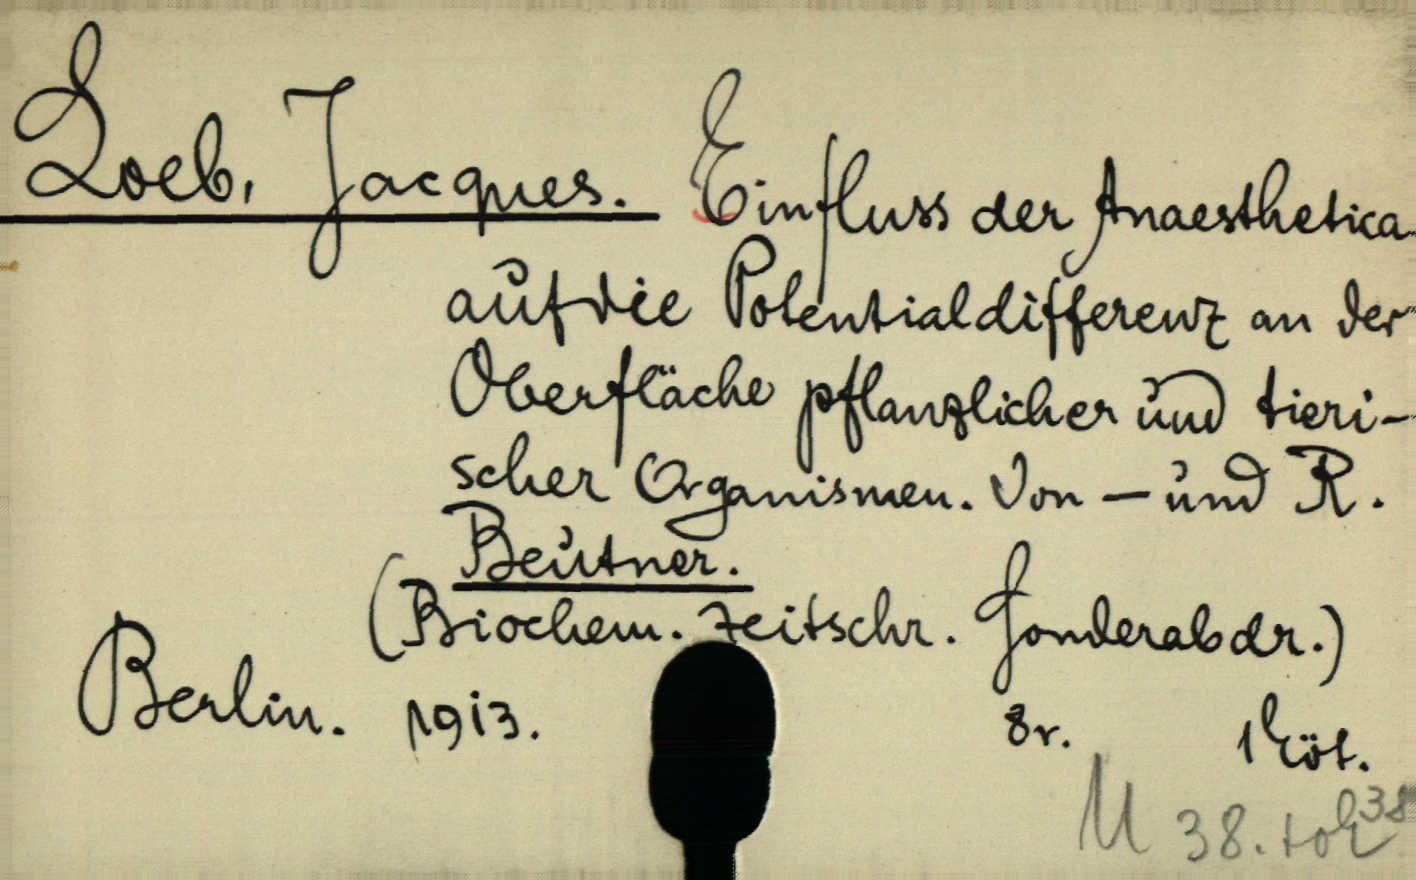 Loeb, Jacques. Einfluss der Anaesthetica
auf die Potentialdifferenz an der
Oberfläche pflanzlicher und tieri-
scher Organismen. Von — und R.
Beutner.
(Biochem. Zeitschr. Sonderabdr.)
Berlin. 1913. 8r. 1 köt.
M 38.